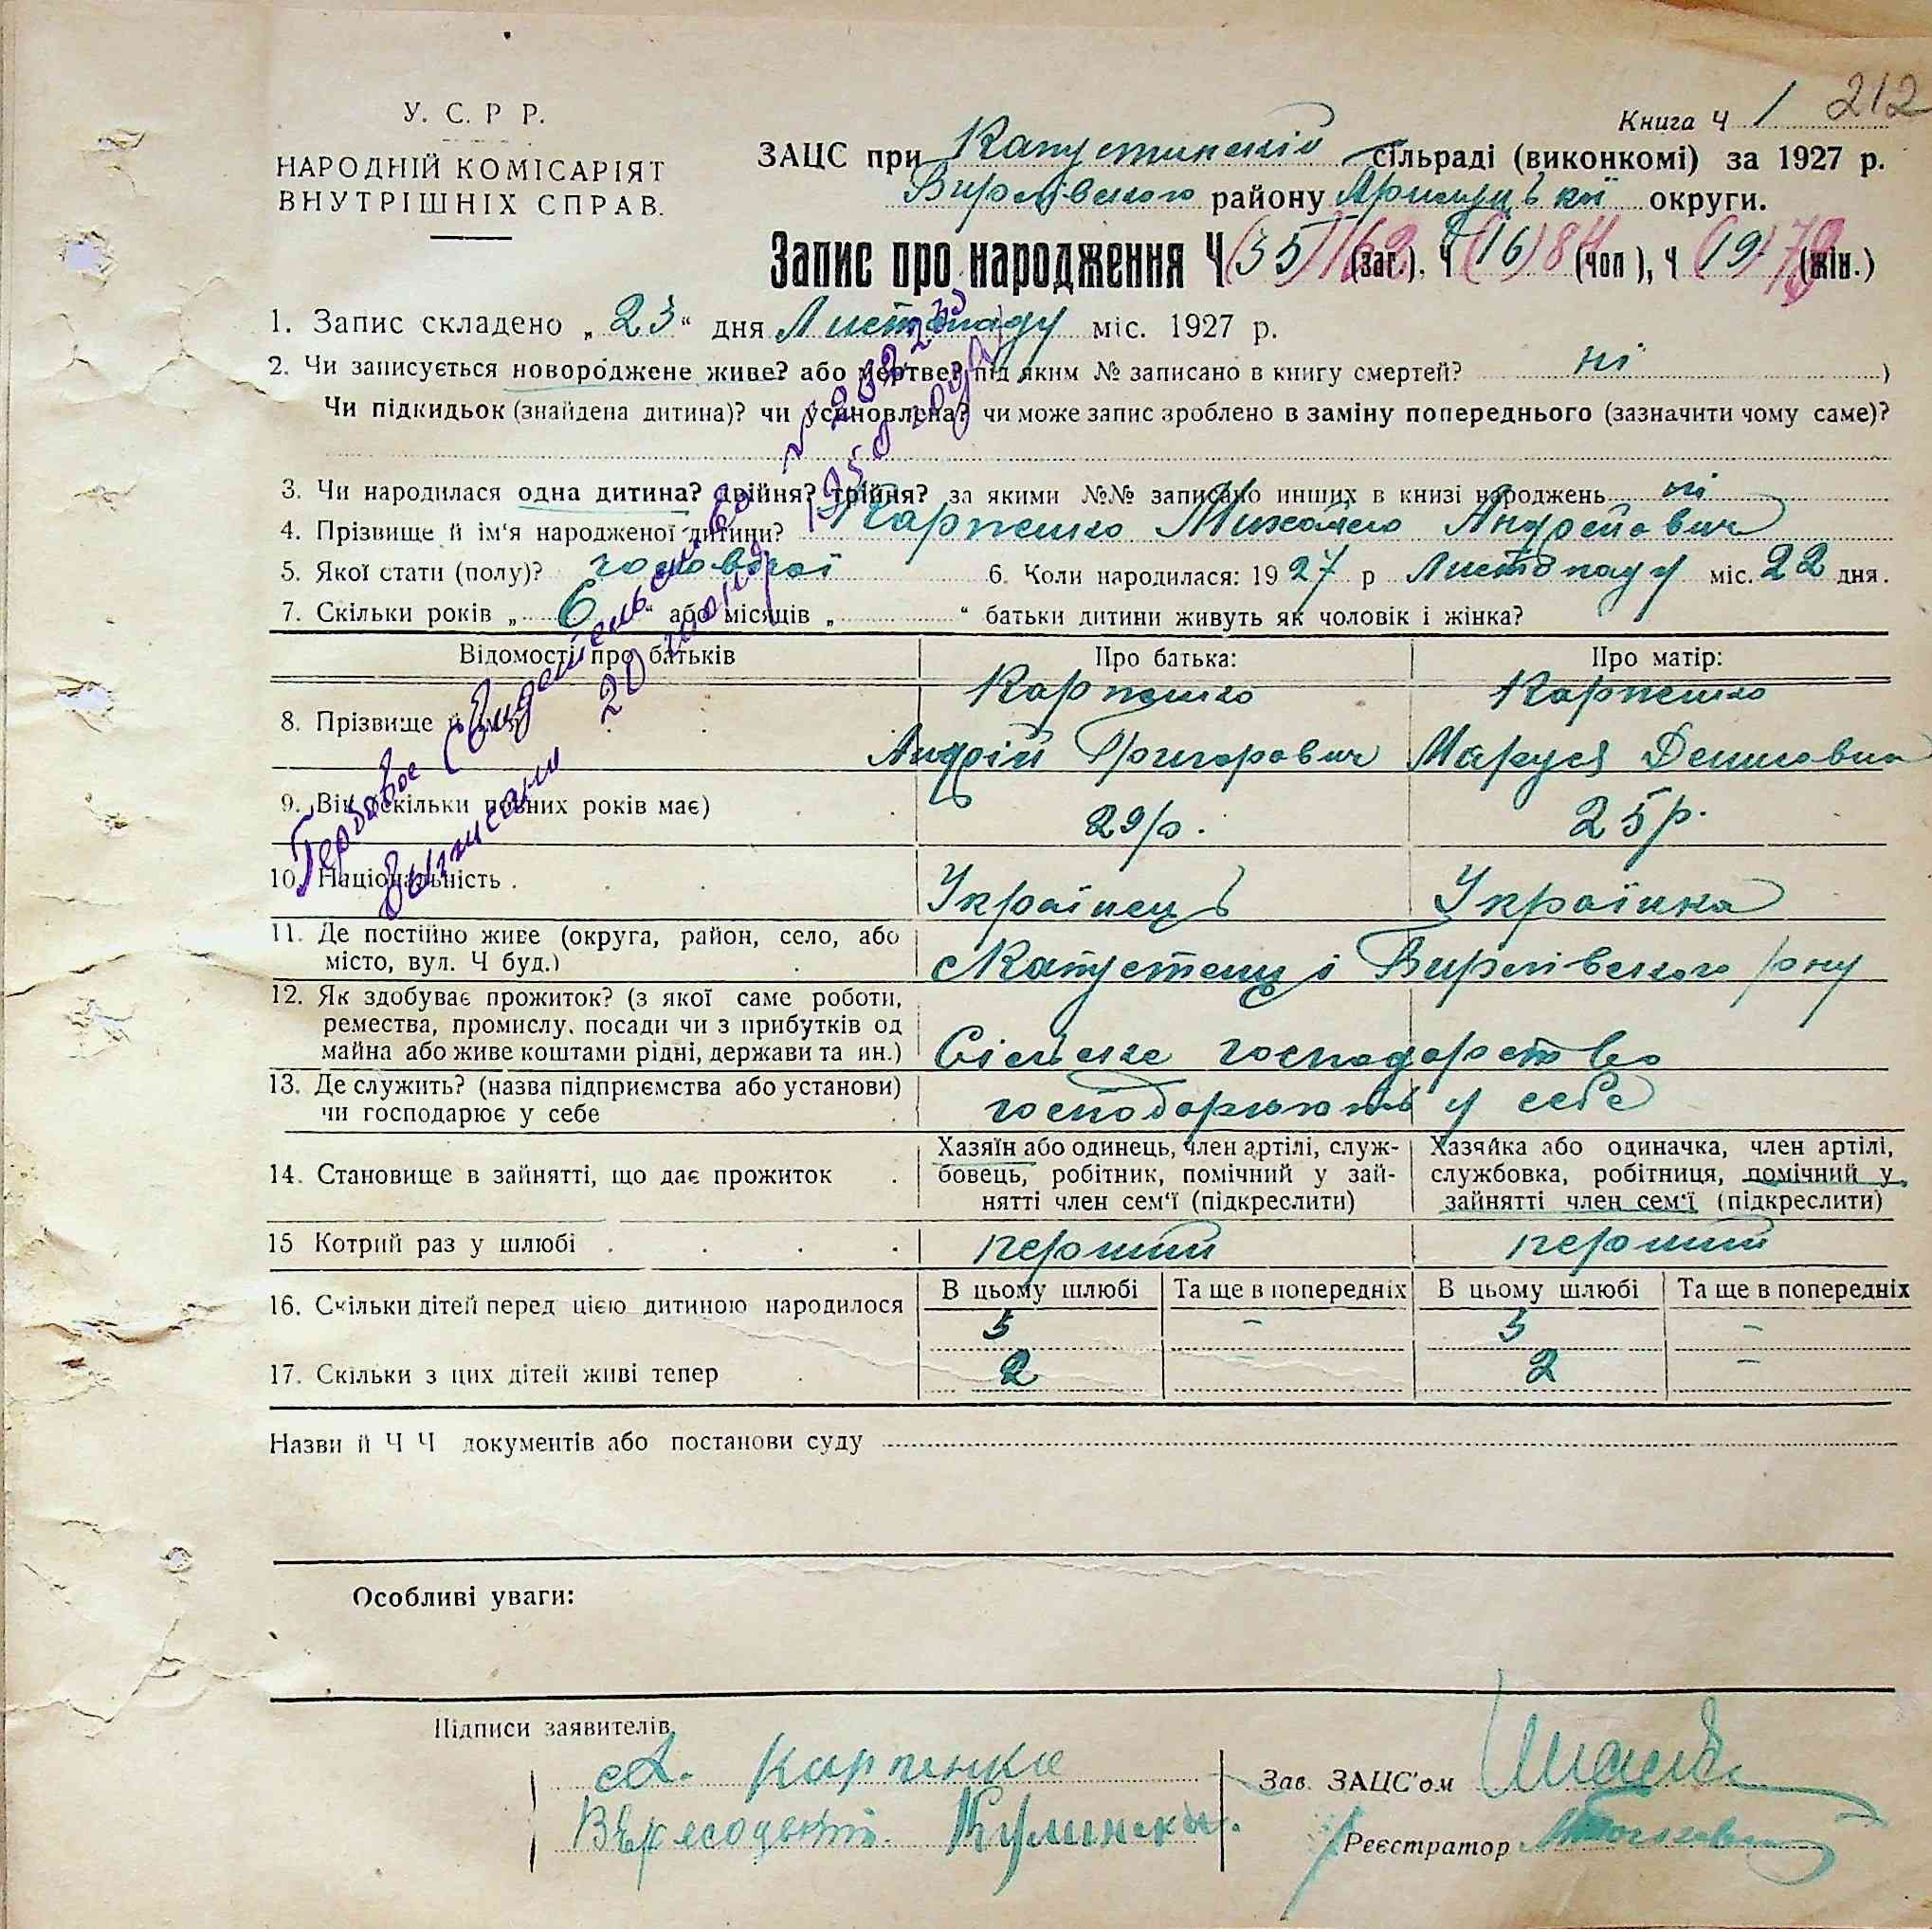 212
Книга Ч 1
У. С. Р Р.
НАРОДНІЙ КОМІСАРІЯТ
ВНУТРІШНІХ СПРАВ.
ЗАЦС при Капустинскій сільраді (виконкомі) за 1927 р.
району округи.
Запис про народження Ч (35) 162 (заг.). Ч (16) 84 (чол), Ч (19) 78 (жін.)
1. Запис складено „ 23 “ дня Листопаду міс. 1927 р.
2. Чи записується новороджене живе? або мертве? під яким № записано в книгу смертей? ні )
Чи підкидьок (знайдена дитина)? чи усиновлена? чи може запис зроблено в заміну попереднього (зазначити чому саме)?
3. Чи народилася одна дитина? двійня? трійня? за якими №№ записано инших в книзі народжень ні
4. Прізвище й ім‘я народженої дитини? Карпенко Михайло Андрейович
5. Якої стати (полу)? чоловічої 6. Коли народилася: 1927 р Листопаду міс. 22 дня.
7. Скільки років „ 6 “ або місяців „ “ батьки дитини живуть як чоловік і жінка?
Гербовое Свидетельство
выписано 20 1950 году
Відомості про батьків Про батька: Про матір:
8. Прізвище й ім‘я Карпенко Карпенко
Андрій Григорович Маруся Денисовна
9. Вік (скільки повних років має) 29 р. 25 р.
10. Національність Українець Українка
11. Де постійно живе (округа, район, село, або
місто, вул. Ч буд.) с Капустенці Вирлівского р ону
12. Як здобуває прожиток? (з якої саме роботи,
ремества, промислу, посади чи з прибутків од
майна або живе коштами рідні, держави та ин.) Сільске господарство
13. Де служить? (назва підприємства або установи)
чи господарює у себе господарюють у себе
14. Становище в зайнятті, що дає прожиток
Хазяїн або одинець, член артілі, служ-
бовець, робітник, помічний у зай-
нятті член сем‘ї (підкреслити)
Хазяйка або одиначка, член артілі,
службовка, робітниця, помічний у
зайнятті член сем‘ї (підкреслити)
15 Котрий раз у шлюбі перший перший
В цьому шлюбі Та ще в попередніх В цьому шлюбі Та ще в попередніх
16. Скільки дітей перед цією дитиною народилося 3 - 3 -
17. Скільки з цих дітей живі тепер 2 - 2 -
Назви й Ч Ч документів або постанови суду
Особливі уваги:
Підписи заявителів
А. Карпенко
Зав. ЗАЦС'ом
Реєстратор